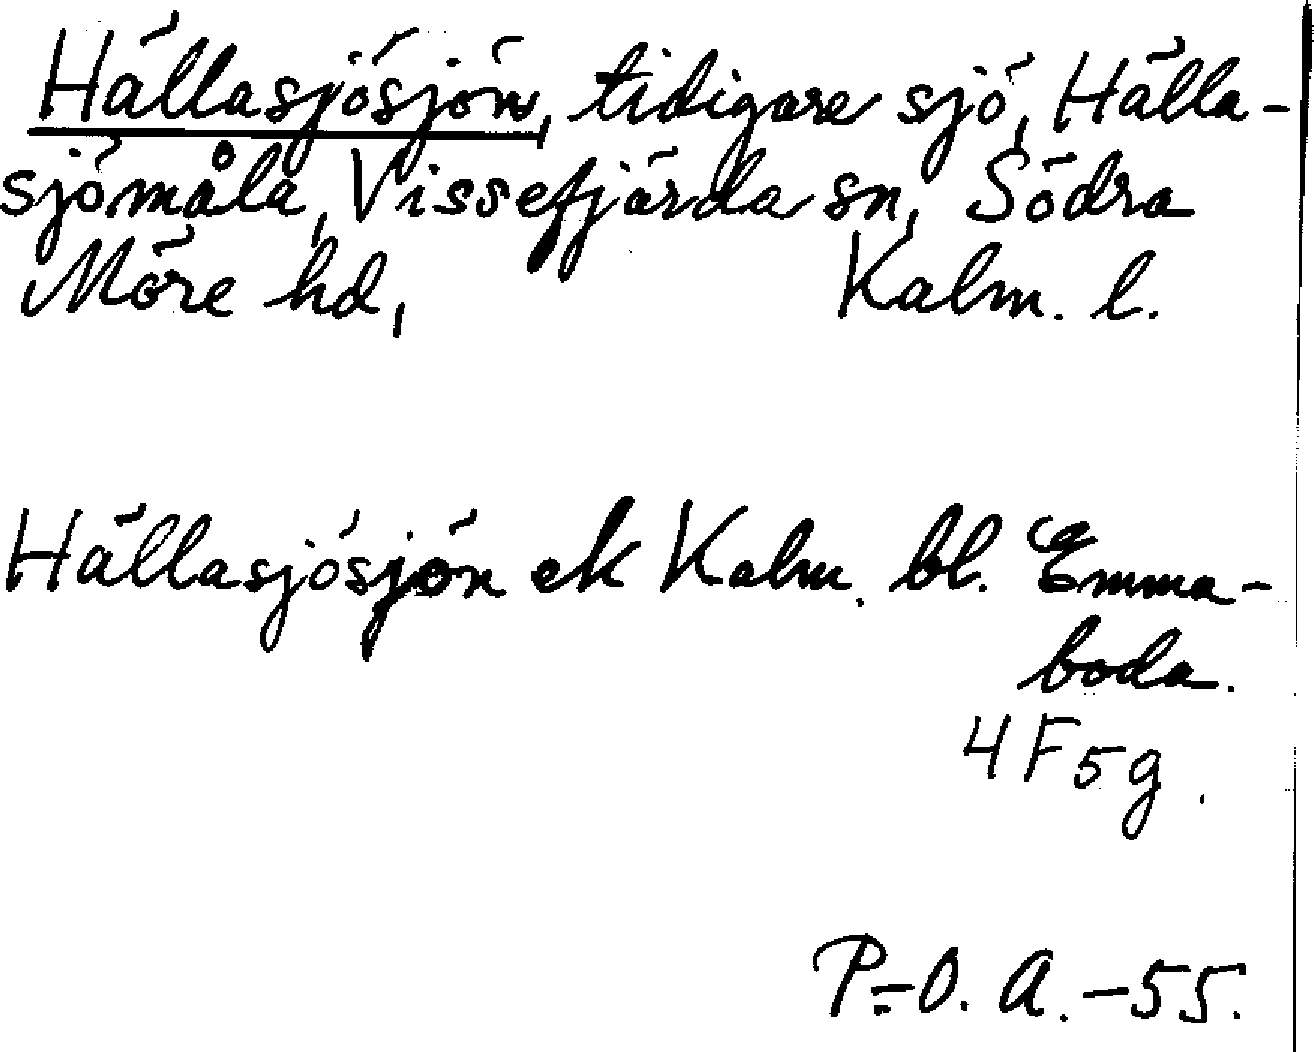 Hällasjösjön, tidigare sjö, Hälla-
sjömåla, Vissefjärda sn, Södra
Möre hd, Kalm. l.
Hällasjösjön ek Kalm. bl. Emma-
boda.
4F5g.
P.-O. A. -55.